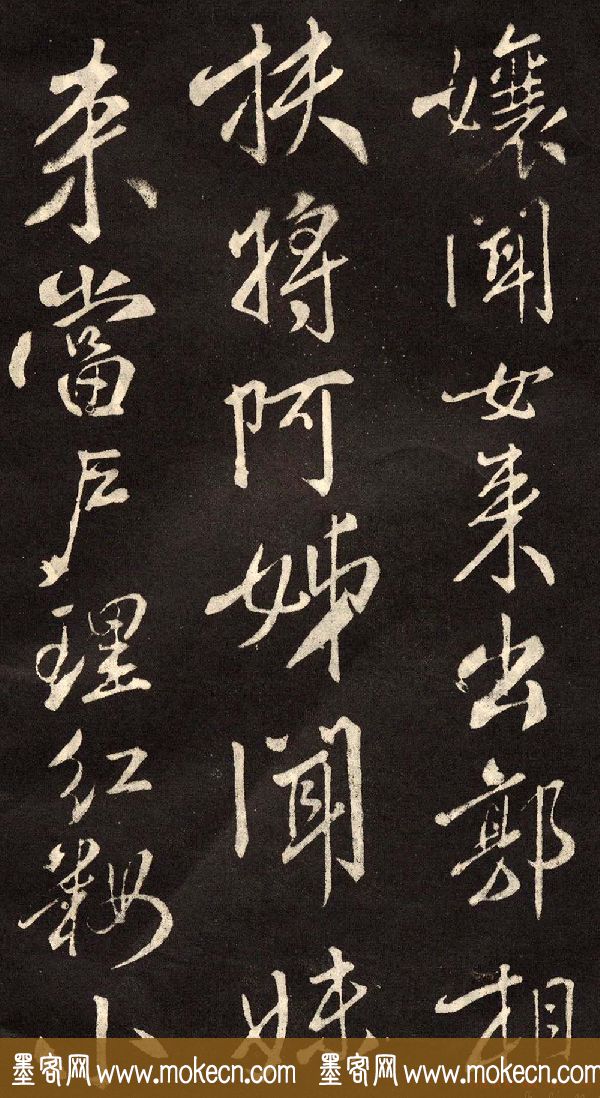 孃聞女来出郭相
扶將阿姊聞妹
来當户理紅妝小
墨客网 www.mokecn.com 墨客网 www.mokecn.com